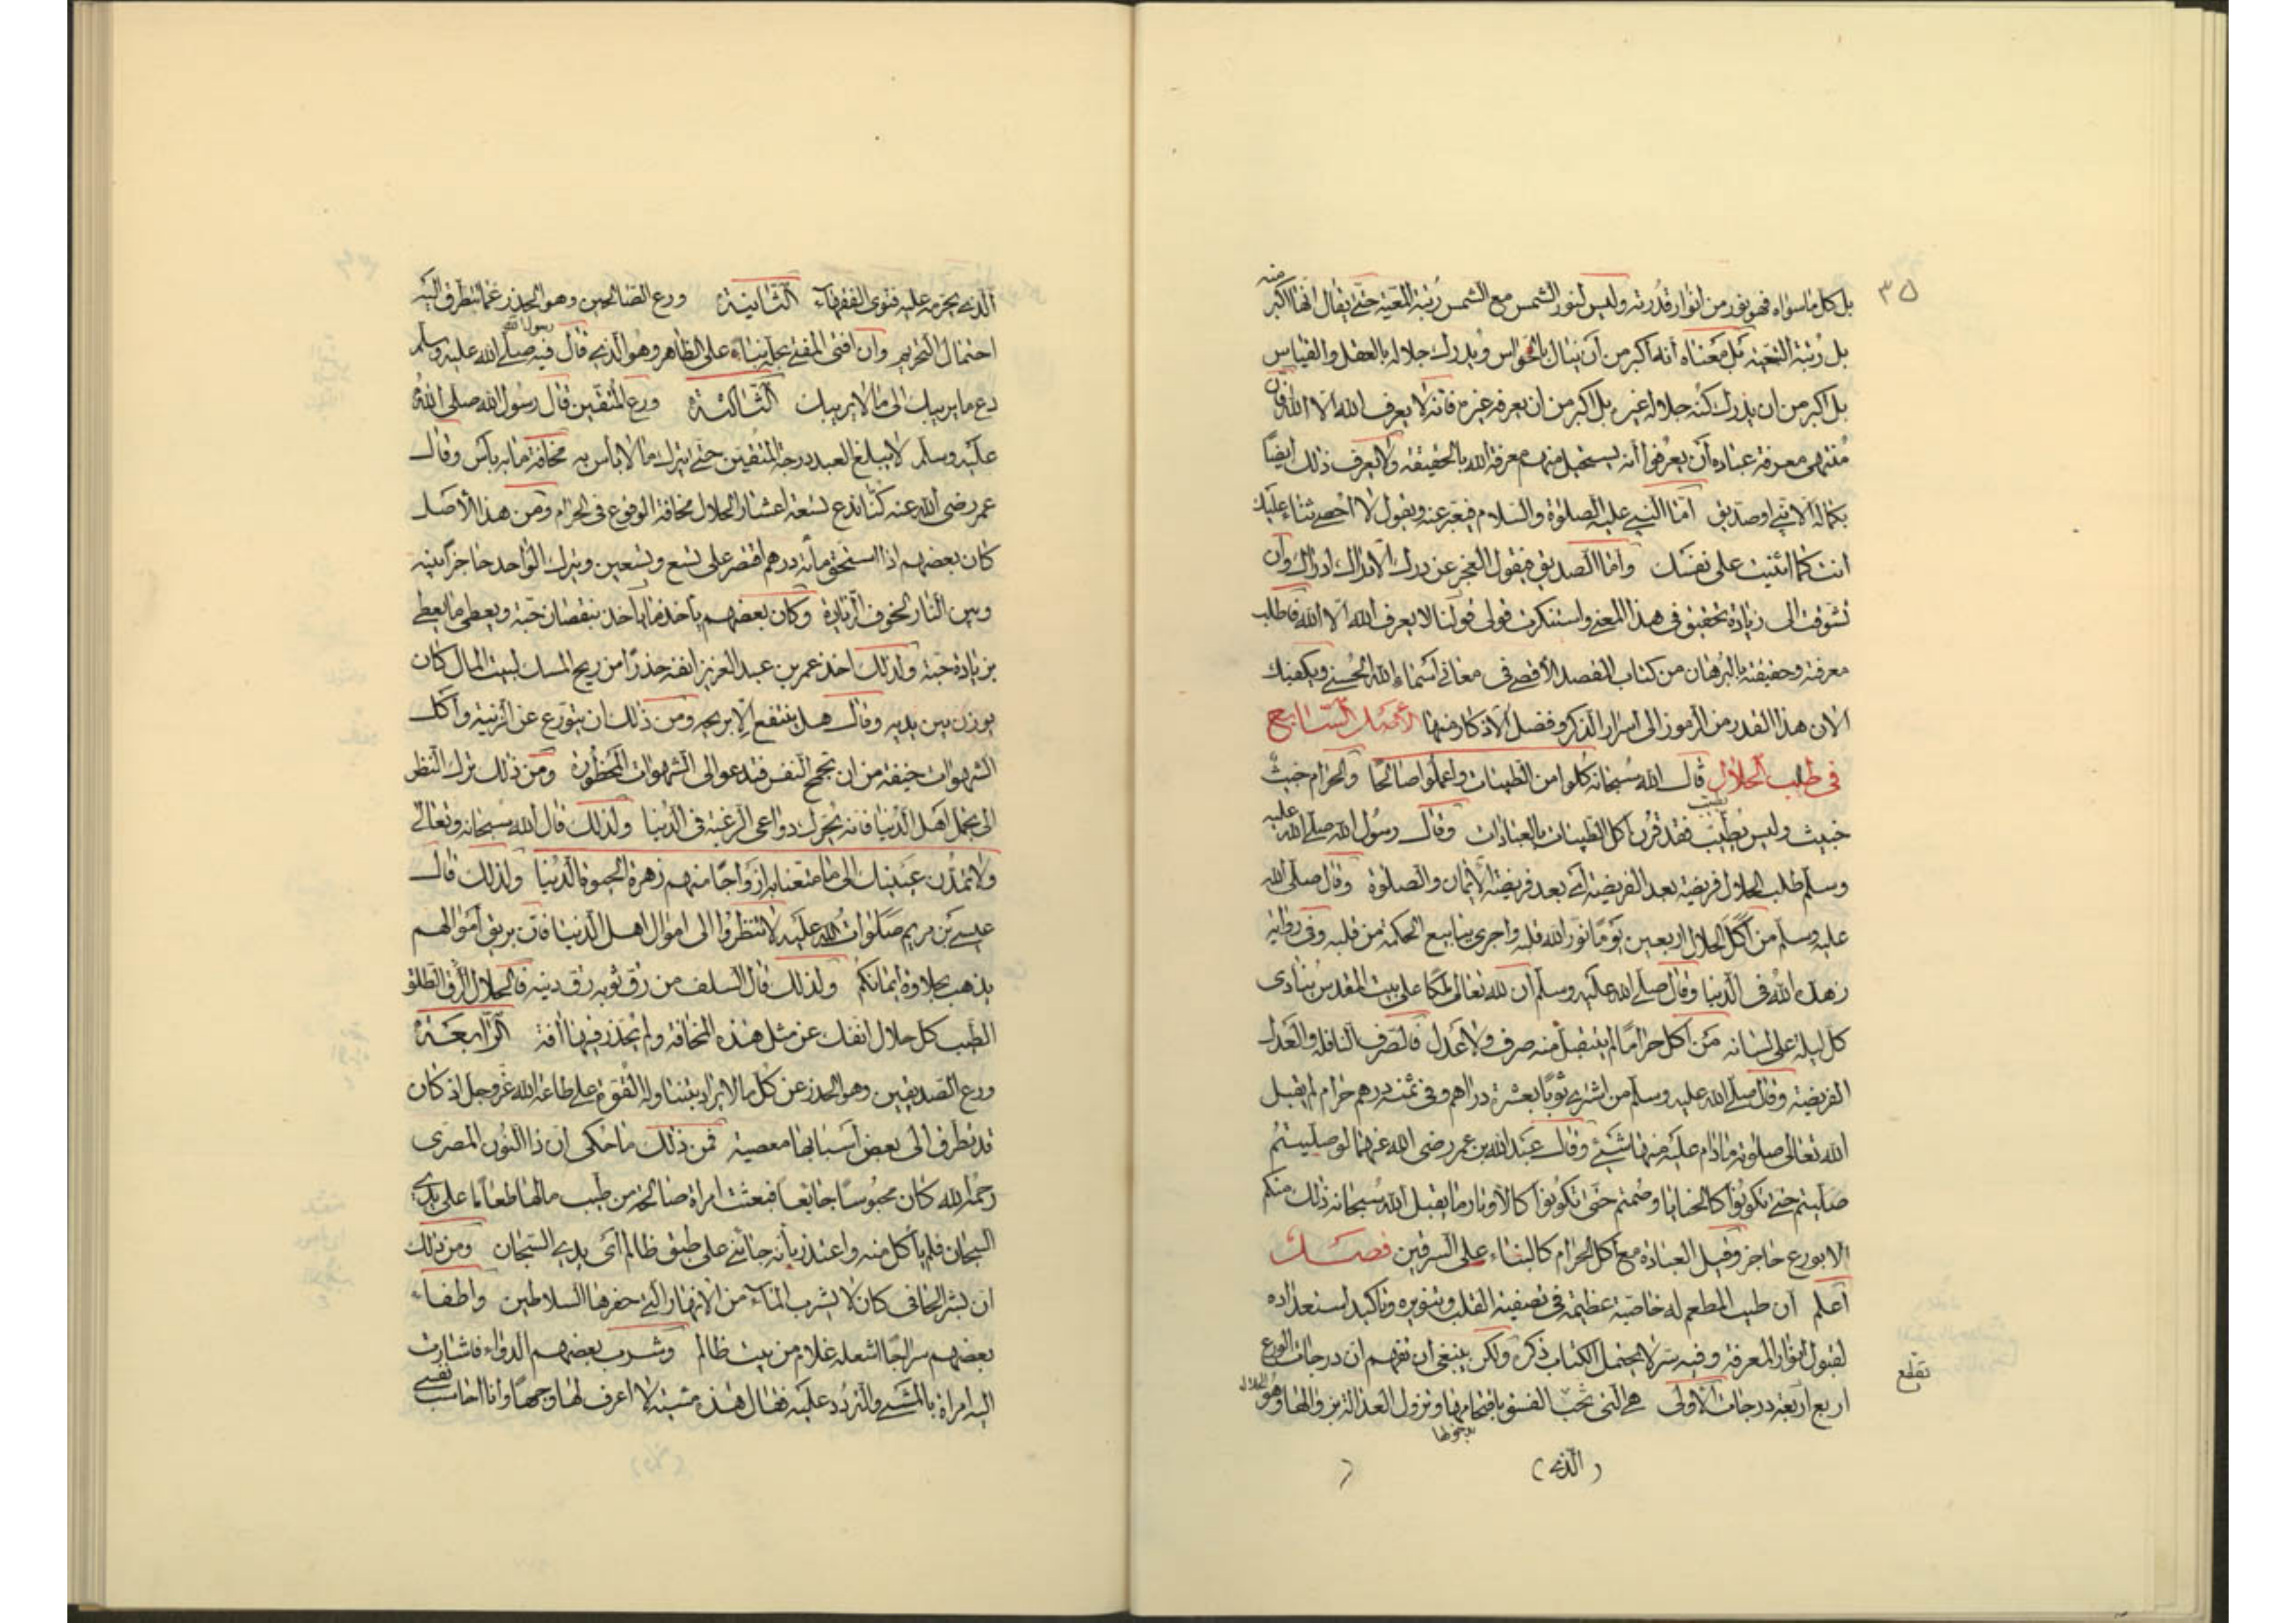 ٣٥
بل كل ما سواه فهو نور من انوار قدرته وليس لنور الشمس مع الشمس رتبة المعية حتى يقال انها اكبر منه
بل رتبة التبعية بل معناه انه اكبر من ان ينال بالحواس ويدرك جلاله بالعقل والقياس
بل اكبر من ان يدرك كنه جلاله غيره بل اكبر من ان يعرفه غيره فانه لا يعرف الله الا الله فان
منتهى معرفة عباده ان يعرفوا انه يستحيل منهم معرفة الله بالحقيقة ولا يعرف ذلك ايضا
بكماله الا نبي او صديق اما النبي عليه الصلوة والسلام فيعبر عنه ويقول لا احصي ثناء عليك
انت كما اثنيت على نفسك واما الصديق فيقول العجز عن درك الادراك ادراك وان
تشوقت الى زيادة تحقيق في هذا المعنى واستنكرت قولى قولنا لا يعرف الله الا الله فاطلب
معرفة وحقيقته بالبرهان من كتاب المقصد الاقصى في معاني اسماء الله الحسنى ويكفيك
الان هذا القدر من الرموز الى اسرار الذكر وفضل الاذكار منها الاصل السابع
في طلب الحلال قال الله سبحانه كلوا من الطيبات واعملوا صالحا والحرام خبث
خبيث وليس بطيب فقد قرن اكل الطيبات بالعبادات وقال رسول الله صلى الله عليه
وسلم طلب الحلال فريضة بعد الفريضة اي بعد فريضة الايمان والصلوة وقال صلى الله
عليه وسلم من اكل الحلال اربعين يوما نور الله قلبه واجرى ينابيع الحكمة من قلبه وفي رواية
زهده الله في الدنيا وقال صلى الله عليه وسلم ان لله تعالى ملكا على بيت المقدس ينادى
كل ليلة على لسانه من اكل حراما لم يقبل منه صرف ولا عدل فالصرف النافلة والعدل
الفريضة وقال صلى الله عليه وسلم من اشترى ثوبا بعشرة دراهم وفي ثمنه درهم حرام لم يقبل
الله تعالى صلوته ما دام عليه منها شيء وقال عبد الله بن عمر رضى الله عنهما لو صليتم
صليتم حتى تكونوا كالحنايا وصمتم حتى تكونوا كالاوتار ما يقبل الله سبحانه ذلك منكم
الا بورع حاجز وقيل العبادة مع اكل الحرام كالبناء على السرقين فصل
اعلم ان طيب المطعم له خاصية عظيمة في تصفية القلب وتنويره وتاكيد استعداده
لقبول انوار المعرفة وفيه سر لا يحتمل الكتاب ذكره ولكن ينبغى ان تفهم ان درجات الورع
اربع اربعة درجات الاولى هي التى تجب الفسق باقتحامها وتزول العدالة بزوالها وهو
(الذي)
الذي يحرمه عليه فتوى الفقهاء الثانية ورع الصالحين وهو الحذر عما يتطرق اليه
احتمال التحريم وان افتى المفتي بحله بناء على الظاهر وهو الذي قال فيه رسول الله صلى الله عليه وسلم
دع ما يريبك الى ما لا يريبك الثالثة ورع المتقين قال رسول الله صلى الله
عليه وسلم لا يبلغ العبد درجة المتقين حتى يترك ما لا باس به مخافة ما به باس وقال
عمر رضى الله عنه كنا ندع تسعة اعشار الحلال مخافة الوقوع في الحرام ومن هذا الاصل
كان بعضهم اذا استحق مائة درهم اقتصر على تسع وتسعين ويترك الواحد حاجزا بينه
وبين النار لخوف الزيادة وكان بعضهم ياخذ ما ياخذ بنقصان حبة ويعطى ما يعطى
بزيادة حبة ولذلك اخذ عمر بن عبد العزيز انفه حذرا من ريح المسك لبيت المال كان
يوزن بين يديه وقال هل ينتفع الا بريحه ومن ذلك ان يتورع عن الزينة واكل
الشهوات خيفة من ان تجمح النفس فتدعو الى الشهوات المحظورة ومن ذلك ترك النظر
الى تجمل اهل الدنيا فانه يحرك دواعى الرغبة في الدنيا ولذلك قال الله سبحانه وتعالى
ولا تمدن عينيك الى ما متعنا به ازواجا منهم زهرة الحيوة الدنيا ولذلك قال
عيسى بن مريم صلوات الله عليه لا تنظروا الى اموال اهل الدنيا فان بريق اموالهم
يذهب بحلاوة ايمانكم ولذلك قال السلف من رق ثوبه رق دينه فالحلال الطلق
الطيب كل حلال انفك عن مثل هذه المخافة ولم يحذر فيها آفة الرابعة
ورع الصديقين وهو الحذر عن كل ما لا يراد بتناوله القوة على طاعة الله عز وجل اذ كان
قد تطرق الى بعض اسبابها معصية فمن ذلك ما حكى ان ذا النون المصرى
رحمه الله كان محبوسا جايعا فبعثت امراة صالحة من طيب مالها طعاما على يدي
السجان فلم ياكل منه واعتذر بانه جاءني على طبق ظالم اى يدي السجان ومن ذلك
ان بشر الحافى كان لا يشرب الماء من الانهار التي حفرها السلاطين واطفاء
بعضهم سراجا اشعله غلام من بيت ظالم وشرب بعضهم الدواء فاشارت
اليه امراة بالمشي والتردد عليه فقال هذه مشية لا اعرف لها وجها وانا احاسب نفسي